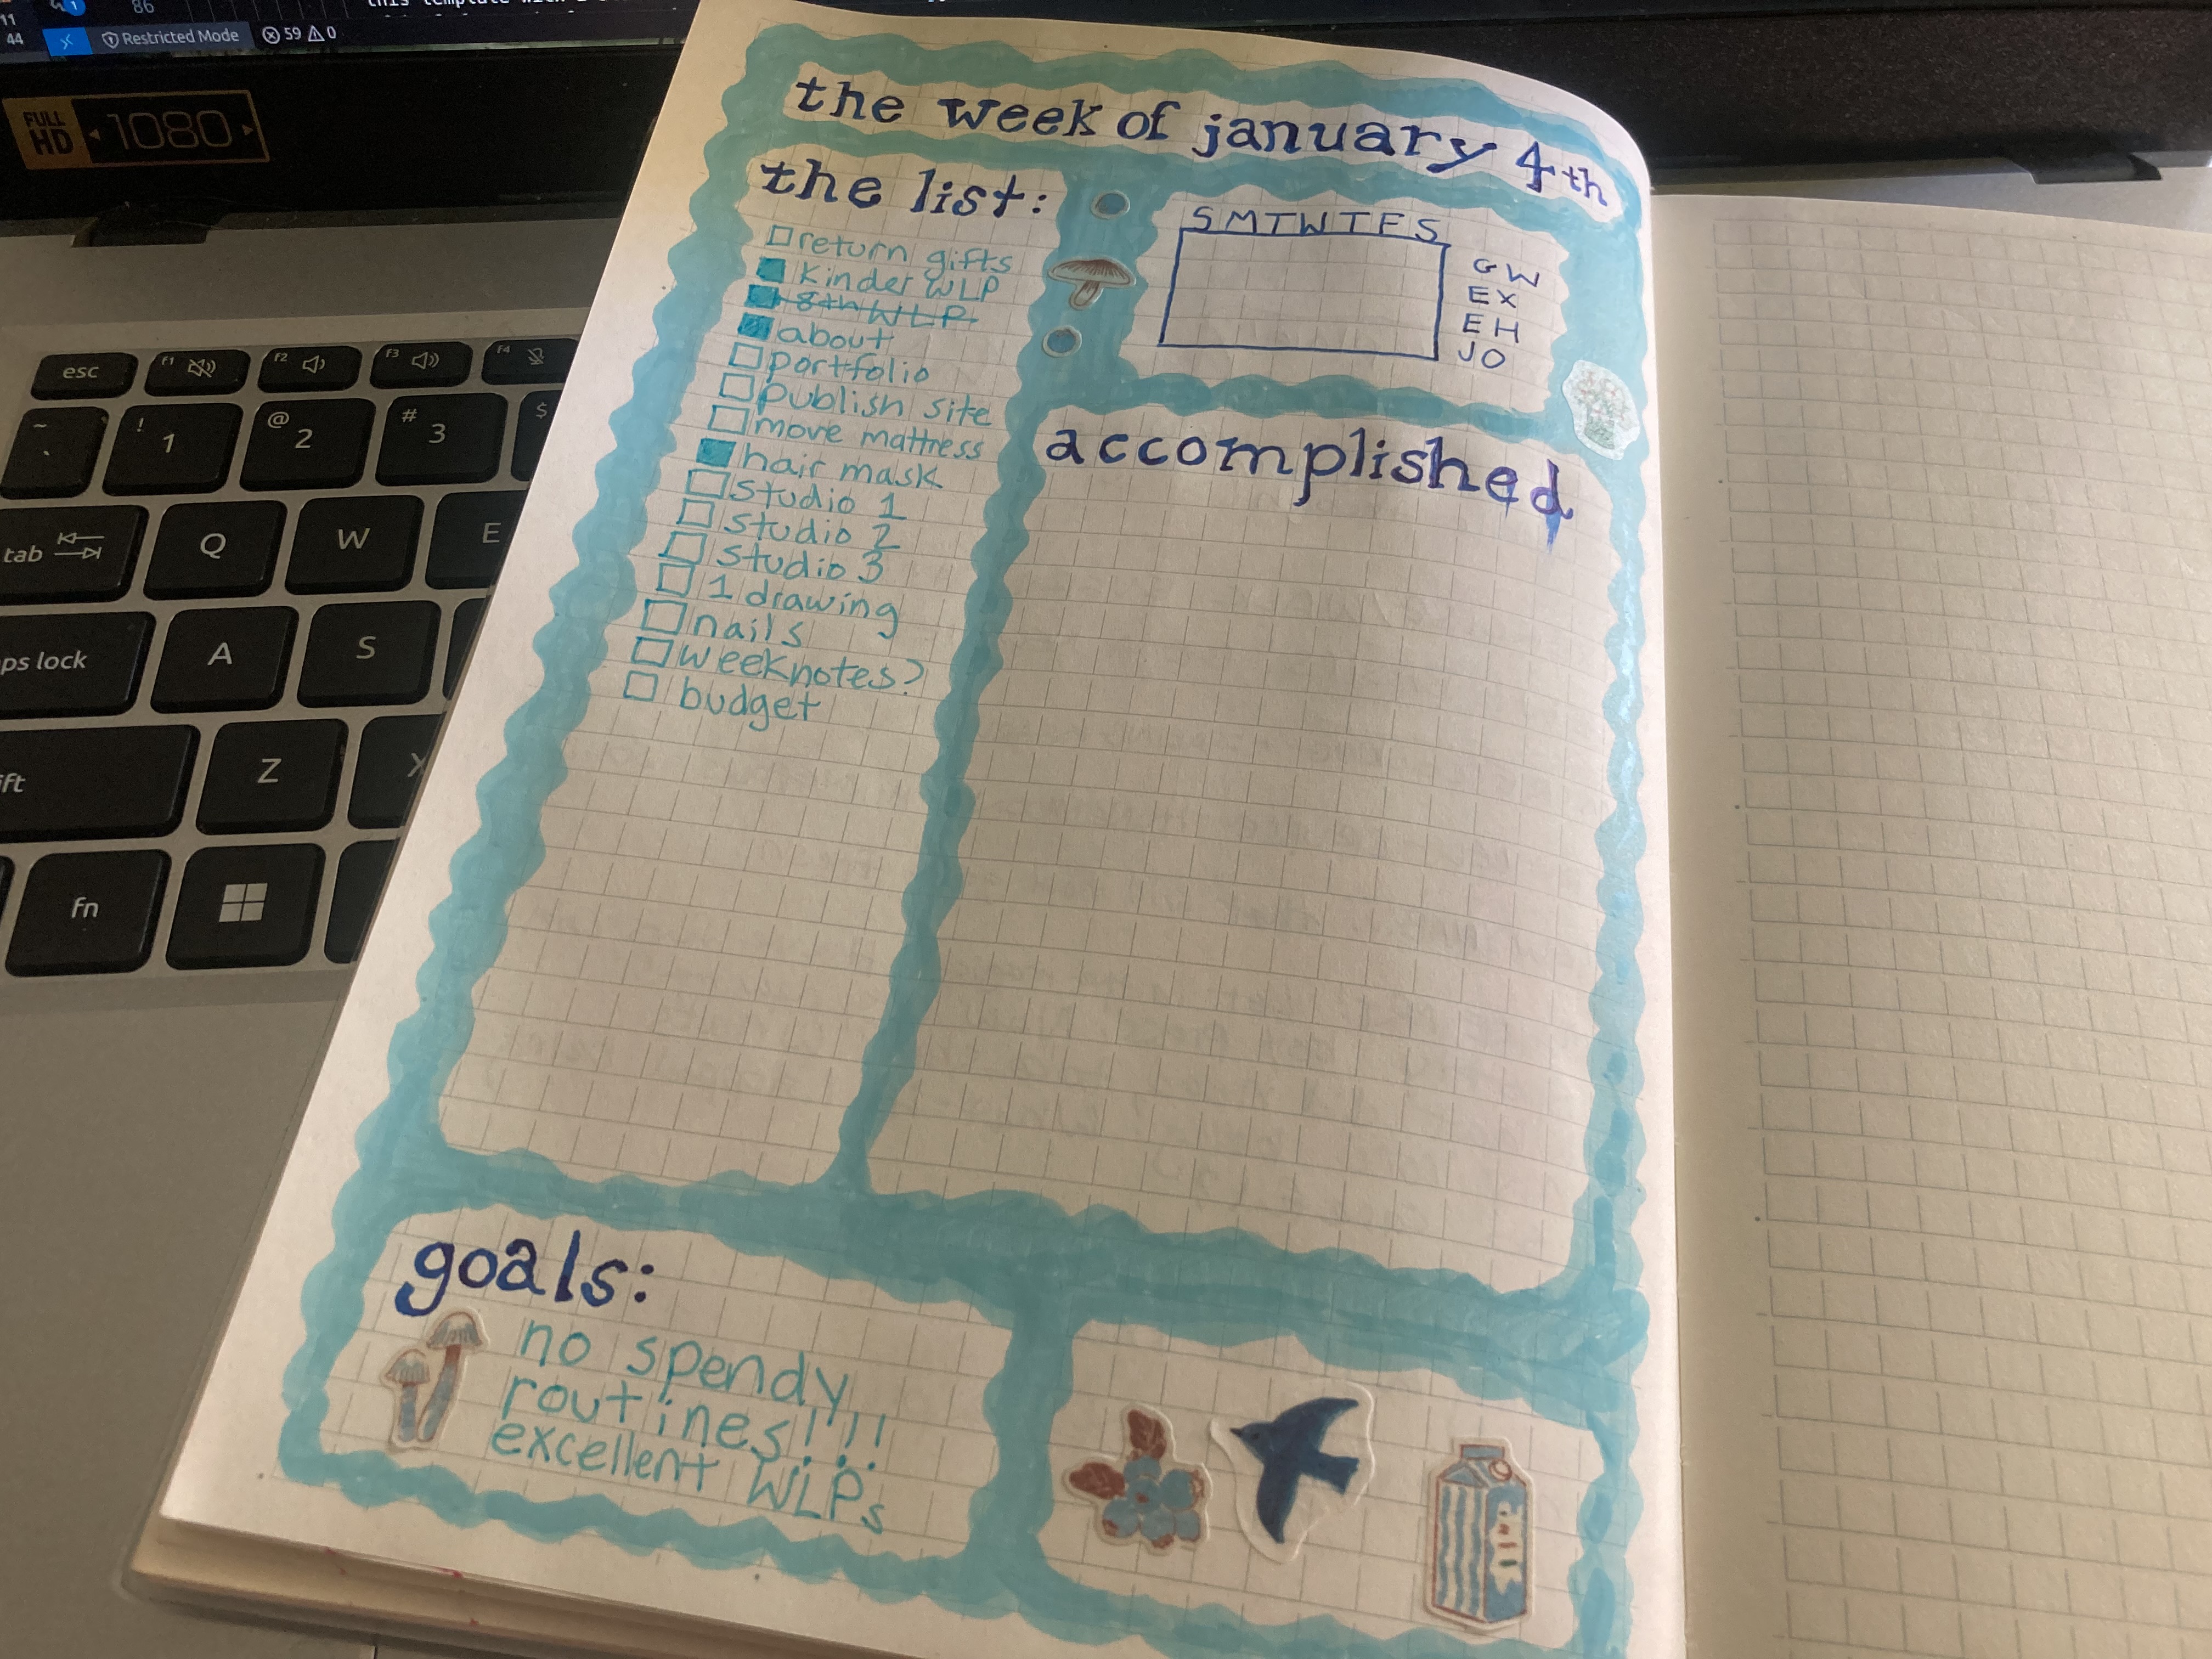 11
44
86
Restricted Mode
59
0
FULL HD
1080
esc
F1
F2
F3
F4
~
`
!
1
@
2
#
3
$
tab
Q
W
E
ps lock
A
S
ift
Z
X
fn
the week of january 4th
the list:
return gifts
Kinder WLP
8th WLP
about
portfolio
publish site
move mattress
hair mask
studio 1
studio 2
studio 3
1 drawing
nails
weeknotes?
budget
S M T W T F S
GW
EX
EH
JO
accomplished
goals:
no spendy
routines!!!
excellent WLPs